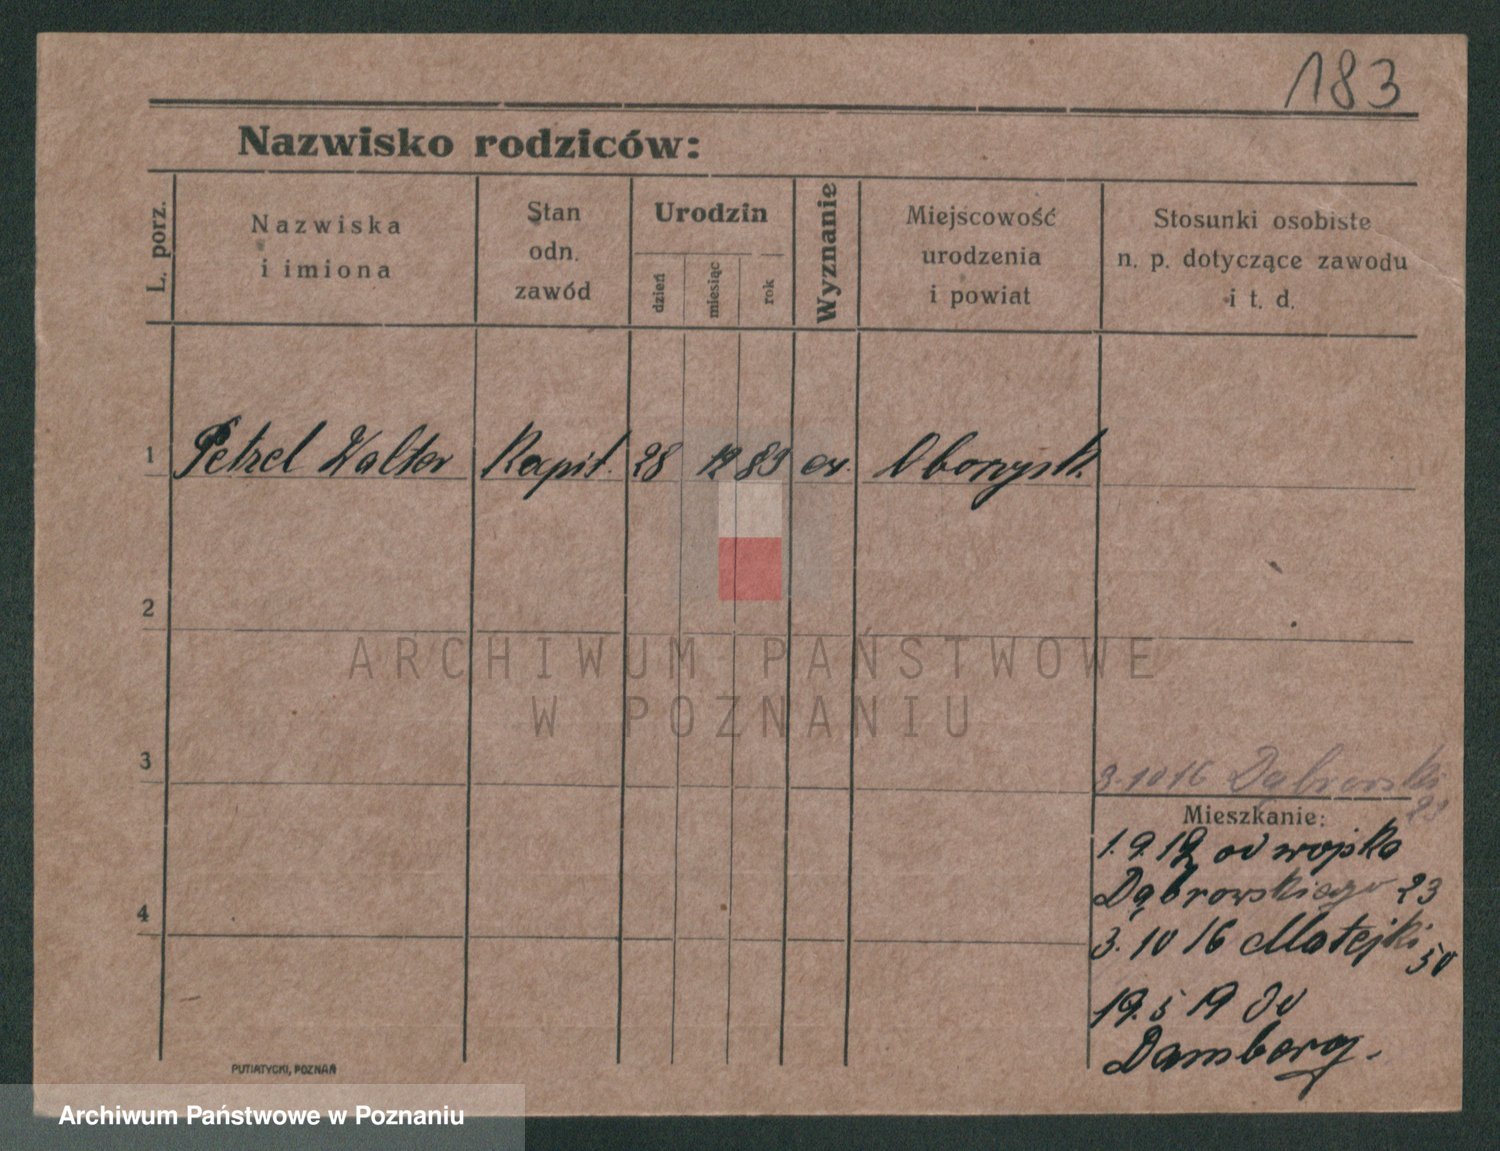 183
Nazwisko rodziców:
L. porz.
Nazwiska
i imiona
Stan
odn.
zawód
Urodzin
dzień
miesiąc
rok
Wyznanie
Miejscowość
urodzenia
i powiat
Stosunki osobiste
n. p. dotyczące zawodu
i t. d.
1 Petzel Walter Kapit. 28 12 89 ew.
2
ARCHIWUM PAŃSTWOWE
W POZNANIU
3
3.10 16 Dąbrowski
23
Mieszkanie:
1.9.12 od wojska
Dąbrowskiego 23
4
3. 10 16 Matejki 50
19. 5 19 do
Damberg.
PUTIATYCKI, POZNAŃ
Archiwum Państwowe w Poznaniu